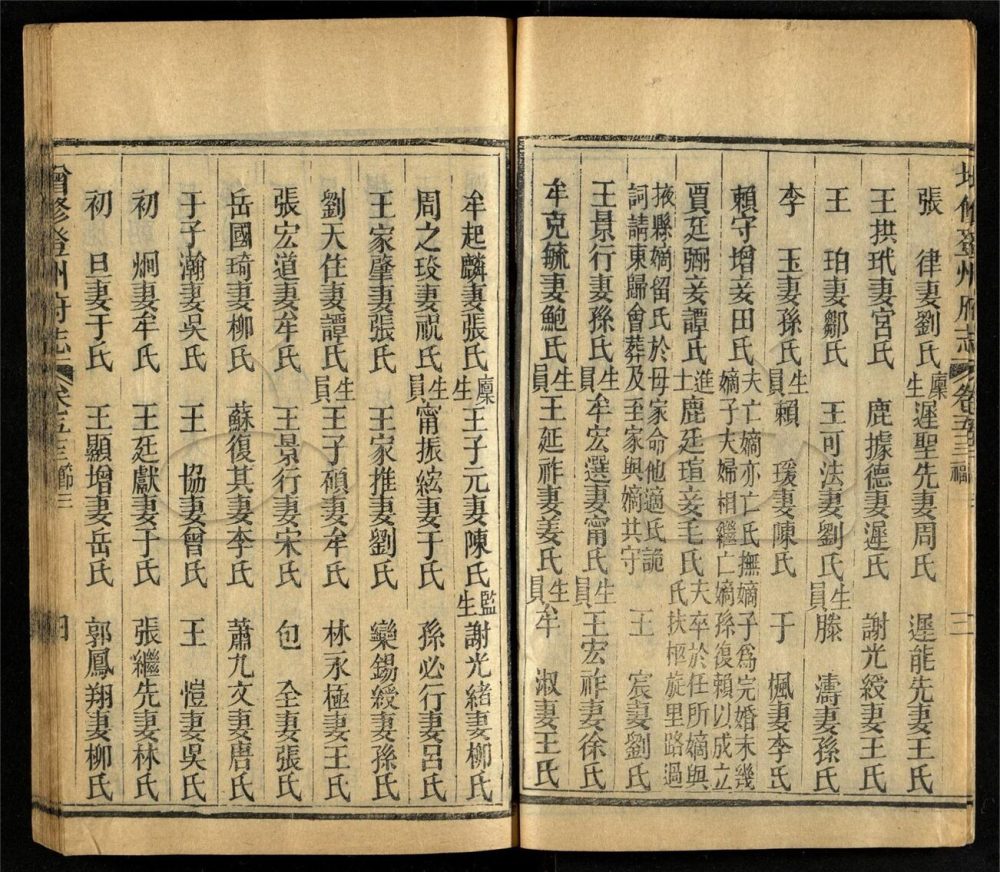 增修登州府志 卷五三 三
張 律妻劉氏 廩生遲聖先妻周氏 遲能先妻王氏
王拱玳妻宮氏 鹿據德妻遲氏 謝光綬妻王氏
王 珀妻鄒氏 王可法妻劉氏 生員滕 濤妻孫氏
李 玉妻孫氏 生員賴 瑗妻陳氏 于 楓妻李氏
賴守增妾田氏 夫亡嫡亦亡氏撫嫡子爲完婚未幾嫡子夫婦相繼亡嫡孫復賴以成立
賈廷弼妾譚氏 進士鹿廷瑄妾毛氏 夫卒於任所嫡與氏扶柩旋里路過
掖縣嫡留氏於母家命他適氏詭詞請東歸會葬及至家與嫡其守 王 宸妻劉氏
王景行妻孫氏 生員牟宏選妻甯氏 生員王宏祚妻徐氏
牟克毓妻鮑氏 生員王延祚妻姜氏 生員牟 淑妻王氏
牟起麟妻張氏 廩生王子元妻陳氏 監生謝光緒妻柳氏
周之琰妻祝氏 生員甯振絃妻于氏 孫必行妻呂氏
王家肇妻張氏 王家推妻劉氏 欒錫綬妻孫氏
劉天住妻譚氏 生員王子碩妻牟氏 林永極妻王氏
張宏道妻牟氏 王景行妻宋氏 包 全妻張氏
岳國琦妻柳氏 蘇復其妻李氏 蕭九文妻唐氏
于子瀚妻吳氏 王 協妻曾氏 王 愷妻吳氏
初 炯妻牟氏 王廷獻妻于氏 張繼先妻林氏
初 旦妻于氏 王顯增妻岳氏 郭鳳翔妻柳氏
增修登州府志 卷五三 節三 四